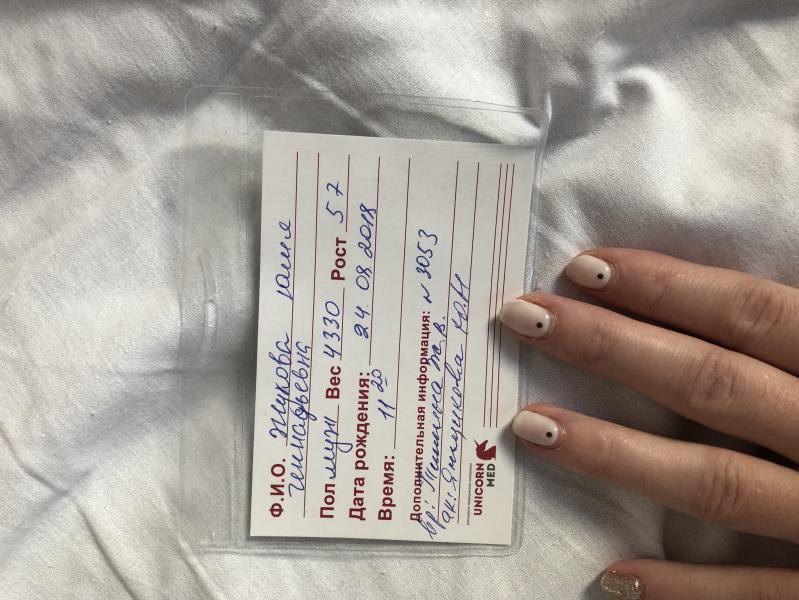 Ф.И.О. Жукова Юлия
Геннадьевна
Пол муж Вес 4330 Рост 57
Дата рождения: 24.08.2018
Время: 11 20
Дополнительная информация: N 3053
вр:
ак: Янчукова Ю.Н
UNICORN
MED